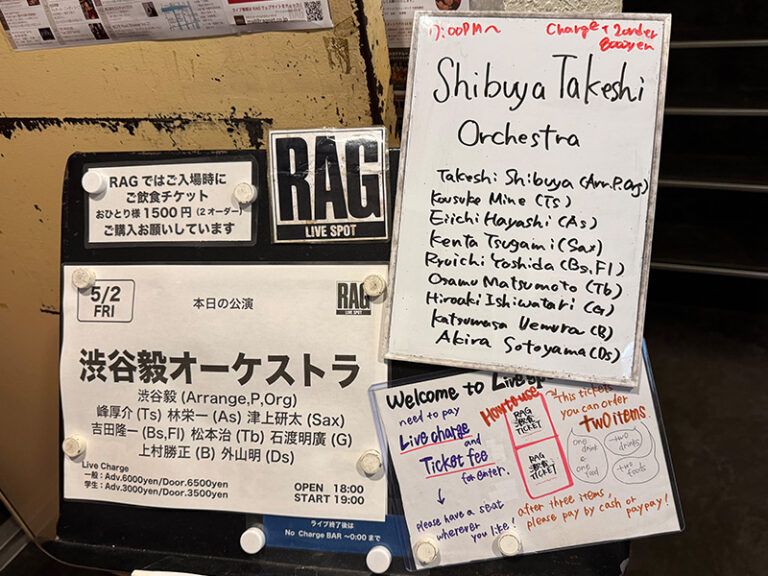 RAGではご入場時に
ご飲食チケット
おひとり様1500円(2オーダー)
ご購入お願いしています
RAG
LIVE SPOT
5/2
FRI
本日の公演
RAG
LIVE SPOT
渋谷毅オーケストラ
渋谷毅 (Arrange,P,Org)
峰厚介 (Ts) 林栄一 (As) 津上研太 (Sax)
吉田隆一 (Bs,Fl) 松本治 (Tb) 石渡明廣 (G)
上村勝正 (B) 外山明 (Ds)
Live Charge
一般:Adv.6000yen/Door.6500yen
学生:Adv.3000yen/Door.3500yen
OPEN 18:00
START 19:00
ライブ終了後は
No Charge BAR ~0:00まで
7:00PM~
Charge + 2order
8000yen
Shibuya Takeshi
Orchestra
Takeshi Shibuya (Arr.P.Org)
Kousuke Mine (Ts)
Eiichi Hayashi (As)
Kenta Tsugami (Sax)
Ryuichi Yoshida (Bs,Fl)
Osamu Matsumoto (Tb)
Hiroaki Ishiwatari (G)
Katsumasa Uemura (B)
Akira Sotoyama (Ds)
Welcome to Live
need to pay
Live charge
and
Ticket fee
for enter.
↓
please have a seat
wherever
you like!
How to use
RAG
TICKET
RAG
TICKET
This tickets
you can order
two items.
one drink & one food
two drinks
two foods
after three items,
please pay by cash or
paypay!